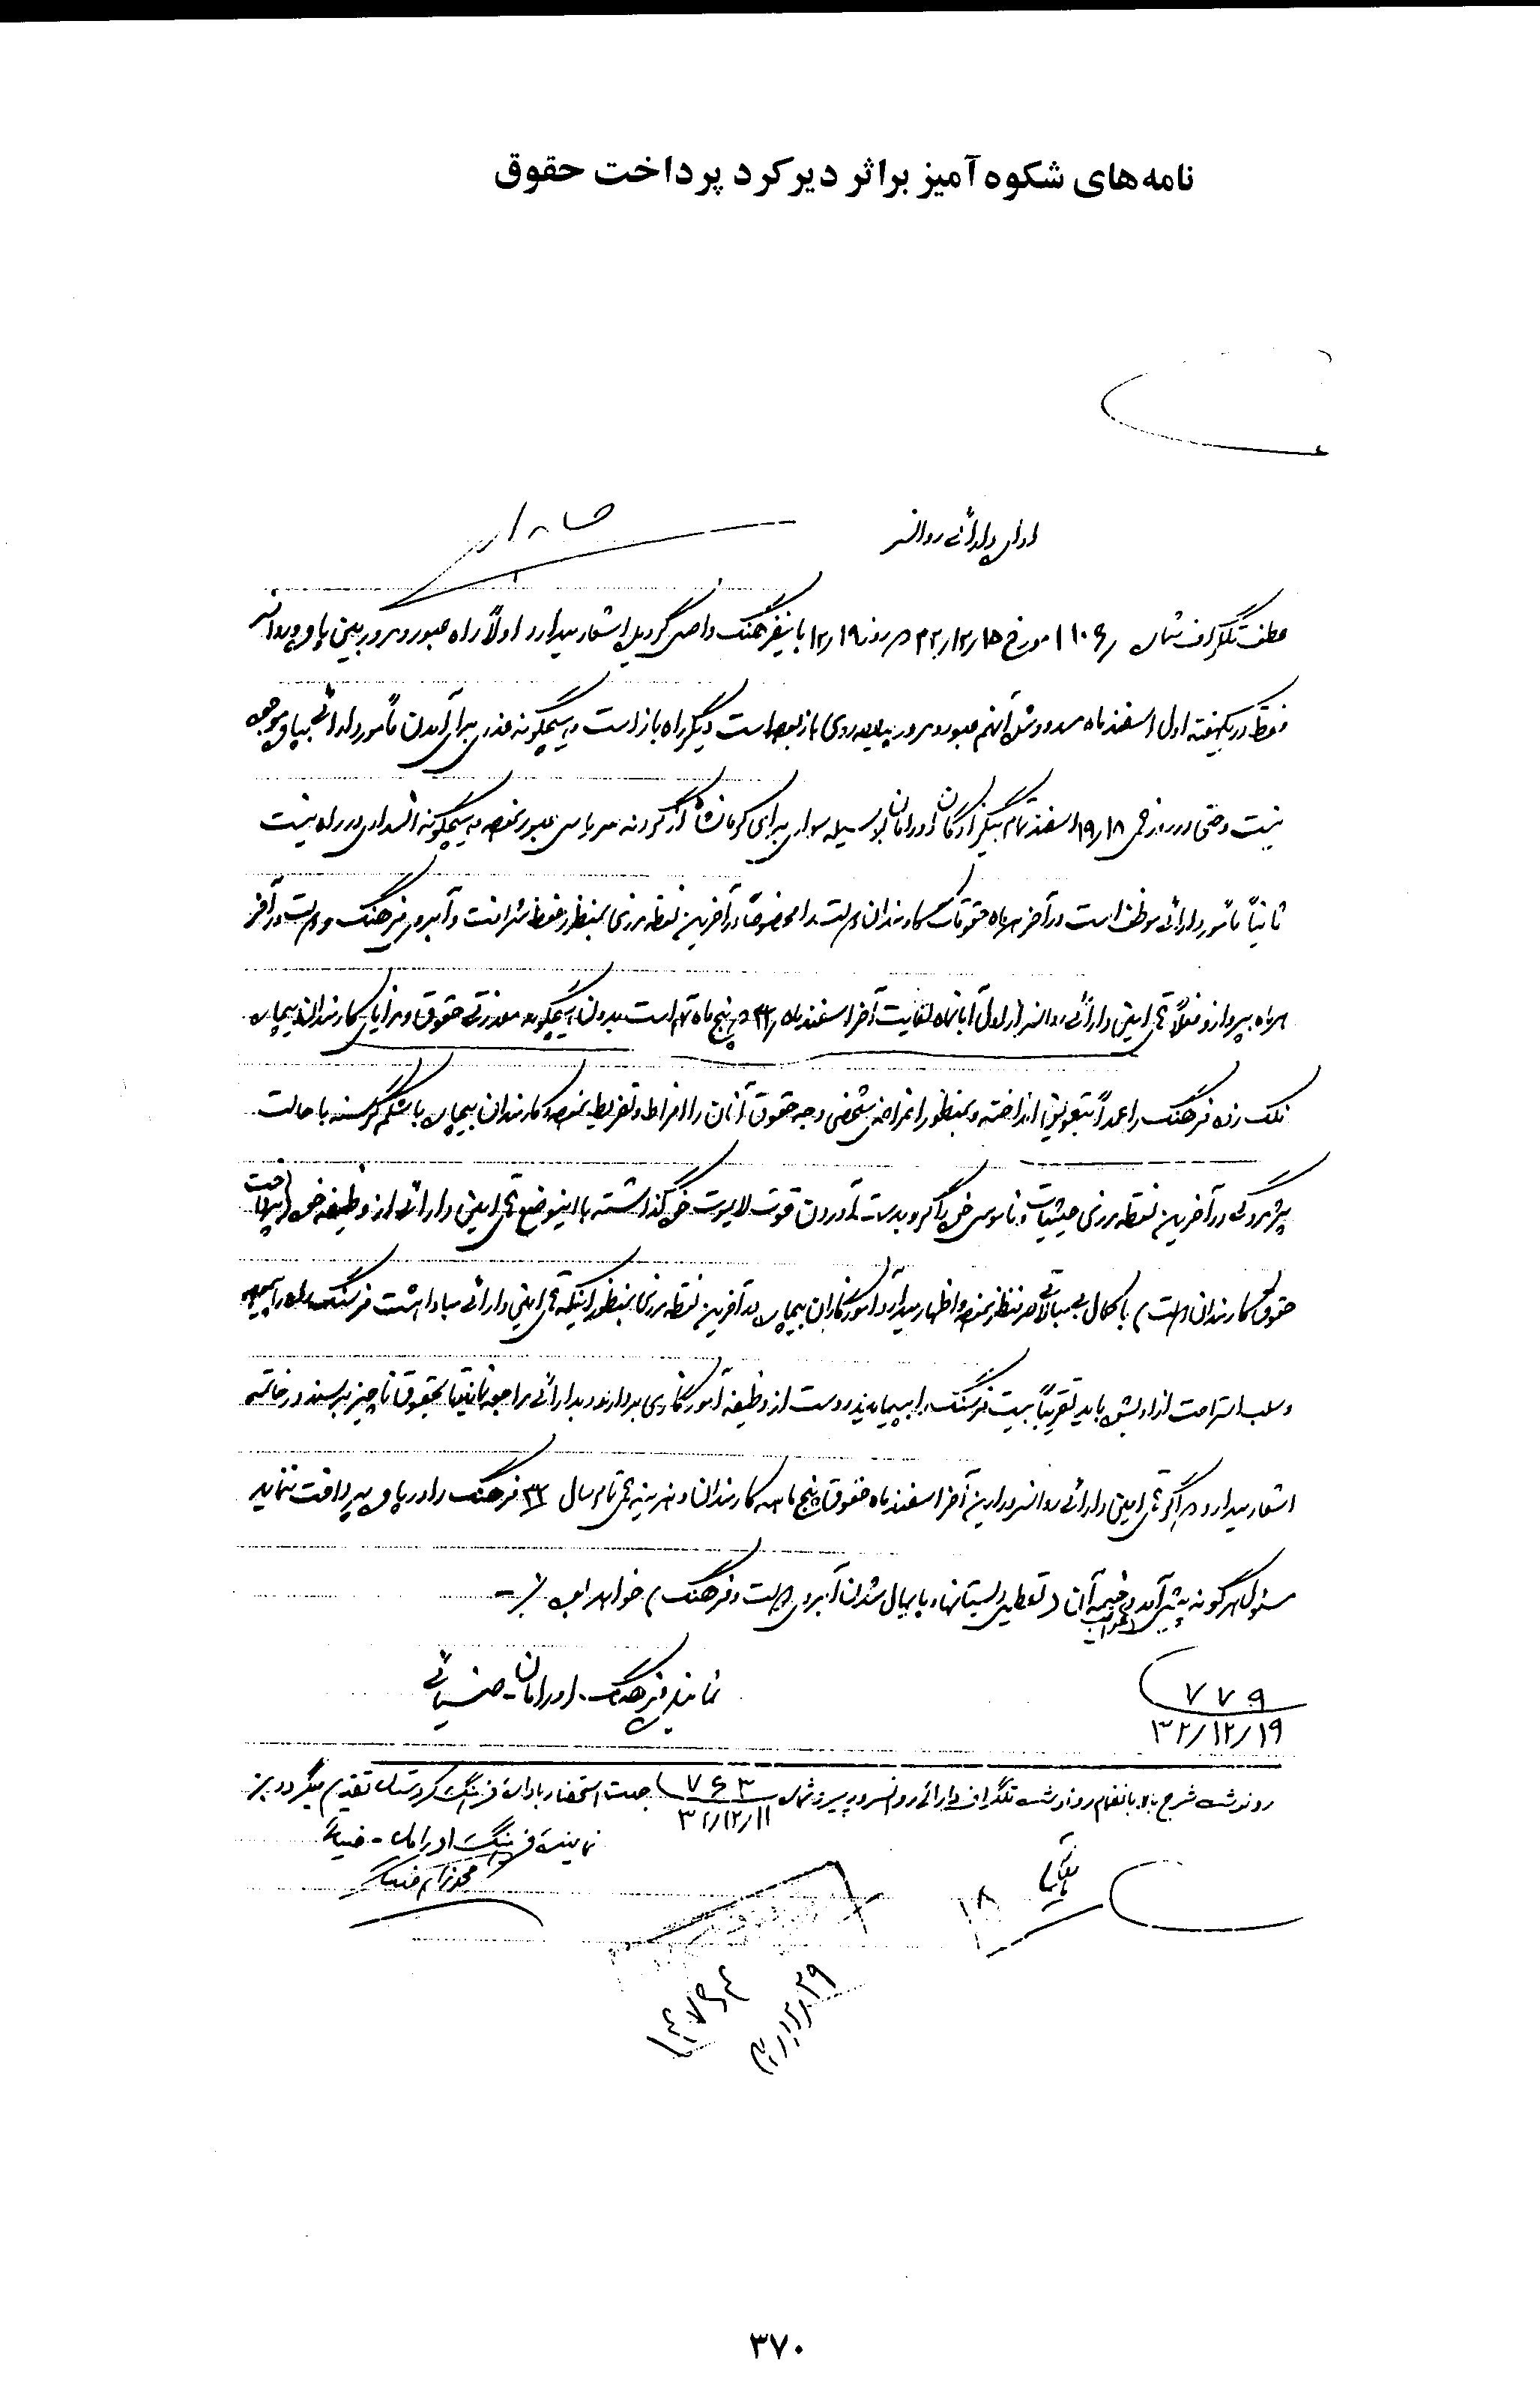 نامه‌های شکوه آمیز بر اثر دیرکرد پرداخت حقوق
اداره دارائی روانسر
عطف تلگراف شماره ۱۱۰۶ مورخ ۳۲/۱۲/۱۵ در روز ۱۲/۱۹ باینفرهنگ واصل گردید اشعار میدارد اولاً راه عبور و مرور بین پاوه و روانسر
فقط در یکهفته اول اسفندماه مسدود شد آنهم عبور و مرور پیاده‌روی باز بوده است دیگر راه باز است و هیچگونه عذری برای آمدن مأمور دارائی بپاوه موجه
نیست و حتی در روز ۱۹/۱۸ اسفند تمام بیگزادگان اورامان بوسیله سواری برای کرمانشاه از گردنه عبور نموده و هیچگونه انسدادی در راه نیست
ثانیاً مأمور دارائی موظف است در آخر هر ماه حقوقات کارمندان دولت را مخصوصاً در آخرین نقطه مرزی بمنظور حفظ شرافت و آبروی فرهنگ و دولت در آخر
هر ماه بپردازد فعلاً متصدی دارائی روانسر از اول آبانماه لغایت آخر اسفندماه ۳۲ که پنج ماه تمام است بدون هیچگونه معذرتی حقوق و مزایای کارمندان بیچاره
فلک زده فرهنگ را عمداً بتعویق انداخته و بمنظور اغراض شخصی وجه حقوق آنان را افراط و تفریط نموده و کارمندان بیچاره با شکم گرسنه با حالت
پژمردگی در آخرین نقطه مرزی حیثیات و ناموس خود را گرو بدست آوردن قوت لایموت خود گذاشته با اینوضع دارائی از وظیفه خود (پرداخت
حقوق کارمندان دولت) با کمال بی‌مبالاتی صرفنظر نموده و اظهار میدارد آموزگاران بیچاره در آخرین نقطه مرزی بمنظور اینکه دارائی مبادا هشت فرسنگ راه را بپیماید
و سلب استراحت از او بشود باید تقریباً بیست فرسنگ راه بپیمایند و دست از وظیفه آموزگاری بردارند و بدارائی مراجعه نمایند تا بحقوق ناچیز برسند در خاتمه
اشعار میدارد هر گاه دارائی روانسر در این آخر اسفندماه حقوق پنج ماهه کارمندان و هزینه تمام سال ۳۲ فرهنگ را در پاوه پرداخت ننماید
مسئول هر گونه پیش‌آمد و عواقب وخیمه آن (تعطیل دبستانها و پایمال شدن آبروی دولت و فرهنگ) خواهد بود.
نماینده فرهنگ اورامان - ضیائی
۷۷۹
۳۲/۱۲/۱۹
رونوشت شرح بالا بانضمام رونوشت تلگراف دارائی روانسر و پیرو شماره ۷۶۳ جهت استحضار باداره فرهنگ کردستان تقدیم میگردد
۳۲/۱۲/۱۱
نماینده فرهنگ اورامان - ضیائی
بایگانی
۱۸
۳۷۰